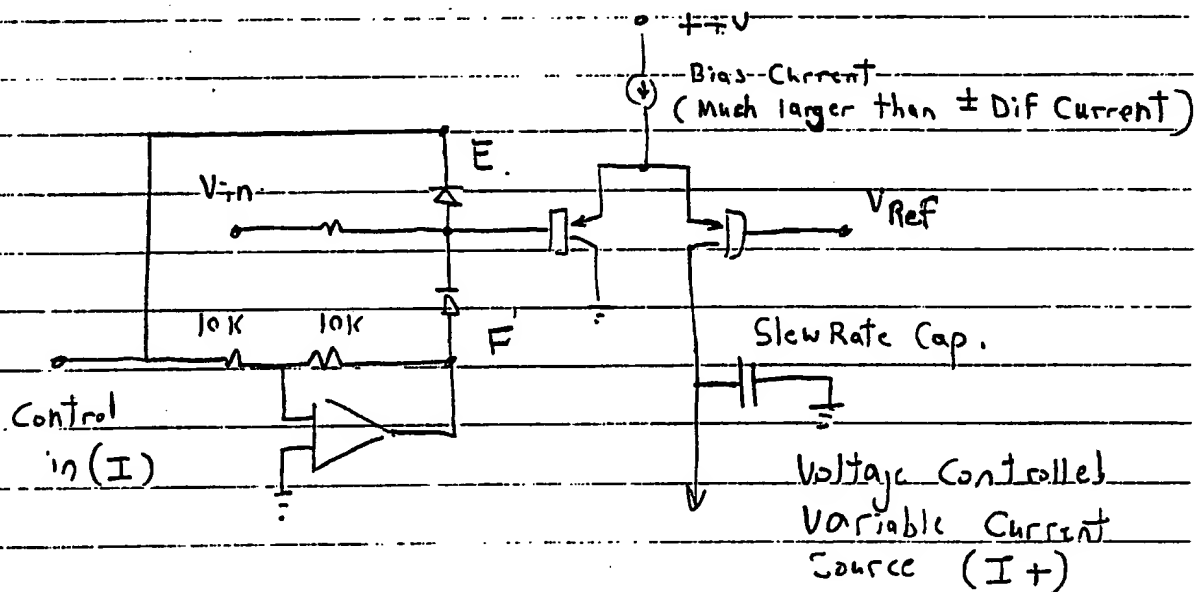 ++V
Bias-Current
(Much larger than ± Dif Current)
E.
V+n
VRef
10K
10K
F
Slew Rate Cap.
Control
in (I)
Voltage Controlled
Variable Current
Source (I+)